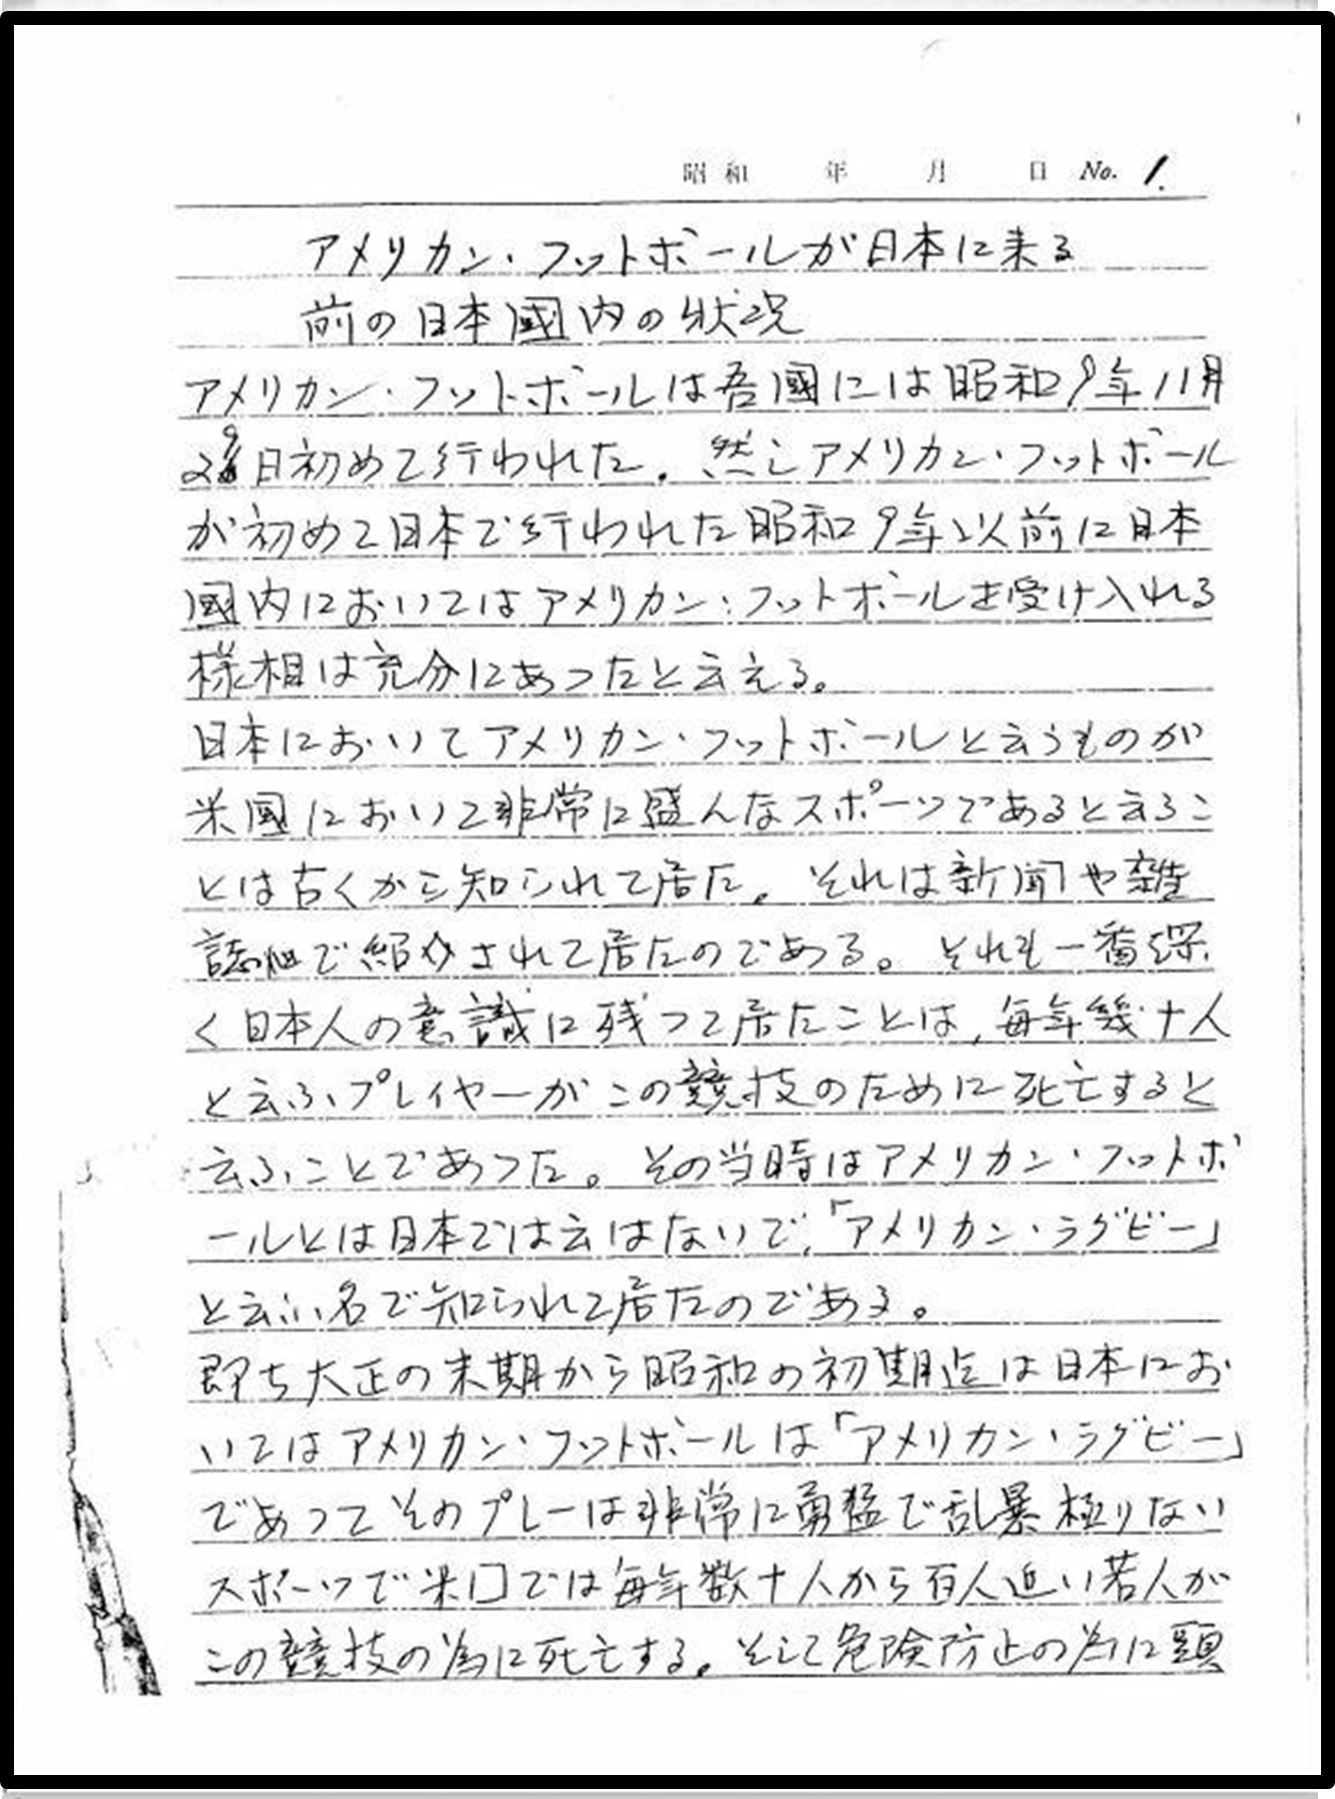 昭和 年 月 日 No. 1.
アメリカン・フットボールが日本に来る
前の日本國内の状況
アメリカン・フットボールは吾國には昭和9年11月
29日初めて行われた。然しアメリカン・フットボール
が初めて日本で行われた昭和9年以前に日本
國内においてはアメリカン・フットボールを受け入れる
様相は充分にあったと云える。
日本においてアメリカン・フットボールと云うものが
米國において非常に盛んなスポーツであると云うこ
とは古くから知られて居た。それは新聞や雑
誌で紹介されて居たのである。それも一番深
く日本人の意識に残って居たことは、毎年幾十人
と云ふプレイヤーがこの競技のために死亡すると
云ふことであった。その当時はアメリカン・フットボ
ールとは日本では云はないで、「アメリカン・ラグビー」
と云ふ名で知られて居たのである。
即ち大正の末期から昭和の初期迄は日本にお
いてはアメリカン・フットボールは「アメリカン・ラグビー」
であってそのプレーは非常に勇猛で乱暴極りない
スポーツで米囗では毎年数十人から百人近い若人が
この競技の為に死亡する。そして危険防止の為に頭